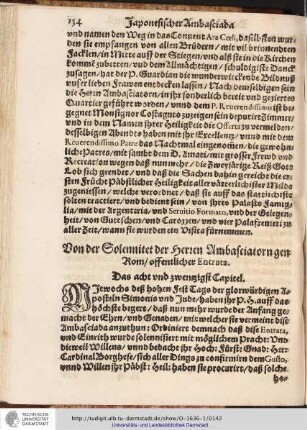 134 Japonesischer Ambasciada
und namen den Weg in das Convent Ara Cœli, daselbsten wurden
sie empfangen von allen Brüdern/ mit vil brinnenden
Facklen/ in Mitte auff der Stiegen/ und als sie in die Kirchen
zubetten/ und dem Allmächtigen/ schuldigiste Danck
zusagen/ hat der P. Guardian die wunderwirckende Bildnuß
unser lieben Frawen endecken lassen/ Nach demselbigen sein
die Herrn Ambasciatorn/ in ihr sonderlich bereit und geziertes
Quartier geführt worden/ unnd dem P. Reverendissimo ist
gegnet Monsignor Costaguto zuzeigen sein
und in dem Namen ihrer Heiligkeit die Officia zuvermelden/
desselbigen Abendts haben mit ihr Excellentz/ unnd mit dem
Reverendissimo Patre das Nachtmal eingenomen/ die gewohnliche
Patres/ mit sambt dem D. Amati/ mit grosser Frewd und
Recreation wegen daß nun mehr/ die Zweyjärige Reiß Gott
Lob sich geendet/ und daß die Sachen dahin
sten Frücht Päbstlicher Heiligkeit
zugeniessen/ welche verordnet/ daß sie auff das stattlichiste
solten tractiert/ und bedient sein/ von ihres Palasts Famiglia/
mit der Argenteria, und Servitio Formato, und der Gelegenheit/
von Gutschen/ und Carozzen/ und vier Palafrenieri zu
aller Zeit/ wann sie wurden ein Visita fürnemmen.
Von der Solennitet der Herren Ambasciatorn gen
Rom/ offentlicher Entrata.
Das acht und zwenzigst Capitel.
Mitwochs deß hohen Fest Tags der glorwürdigen Apostlen
Simonis und Jude/ haben ihr P. H. auff das
höchste begert/ daß nun mehr wurde der Anfang gemacht
der Ehrn/ und Genaden/ mit welcher sie vermeint dise
Ambasciada anzuthun: Ordiniert demnach daß dise Entrata,
und Einritt wurde solennisiert mit möglichem Pracht: Und
dieweil Willens/ unnd bedacht ihr Hoch: Fürst: Gnad: Herr
Cardinal Borghese/ sich aller Dings zu confirmirn dem Gusto,
unnd Willen ihr Päbst: Heil: haben sie procurirt/ daß solche
TECHNISCHE
UNIVERSITÄT
DARMSTADT
http://tudigit.ulb.tu-darmstadt.de/show/O-1636-1/0142
Universitäts- und Landesbibliothek Darmstadt